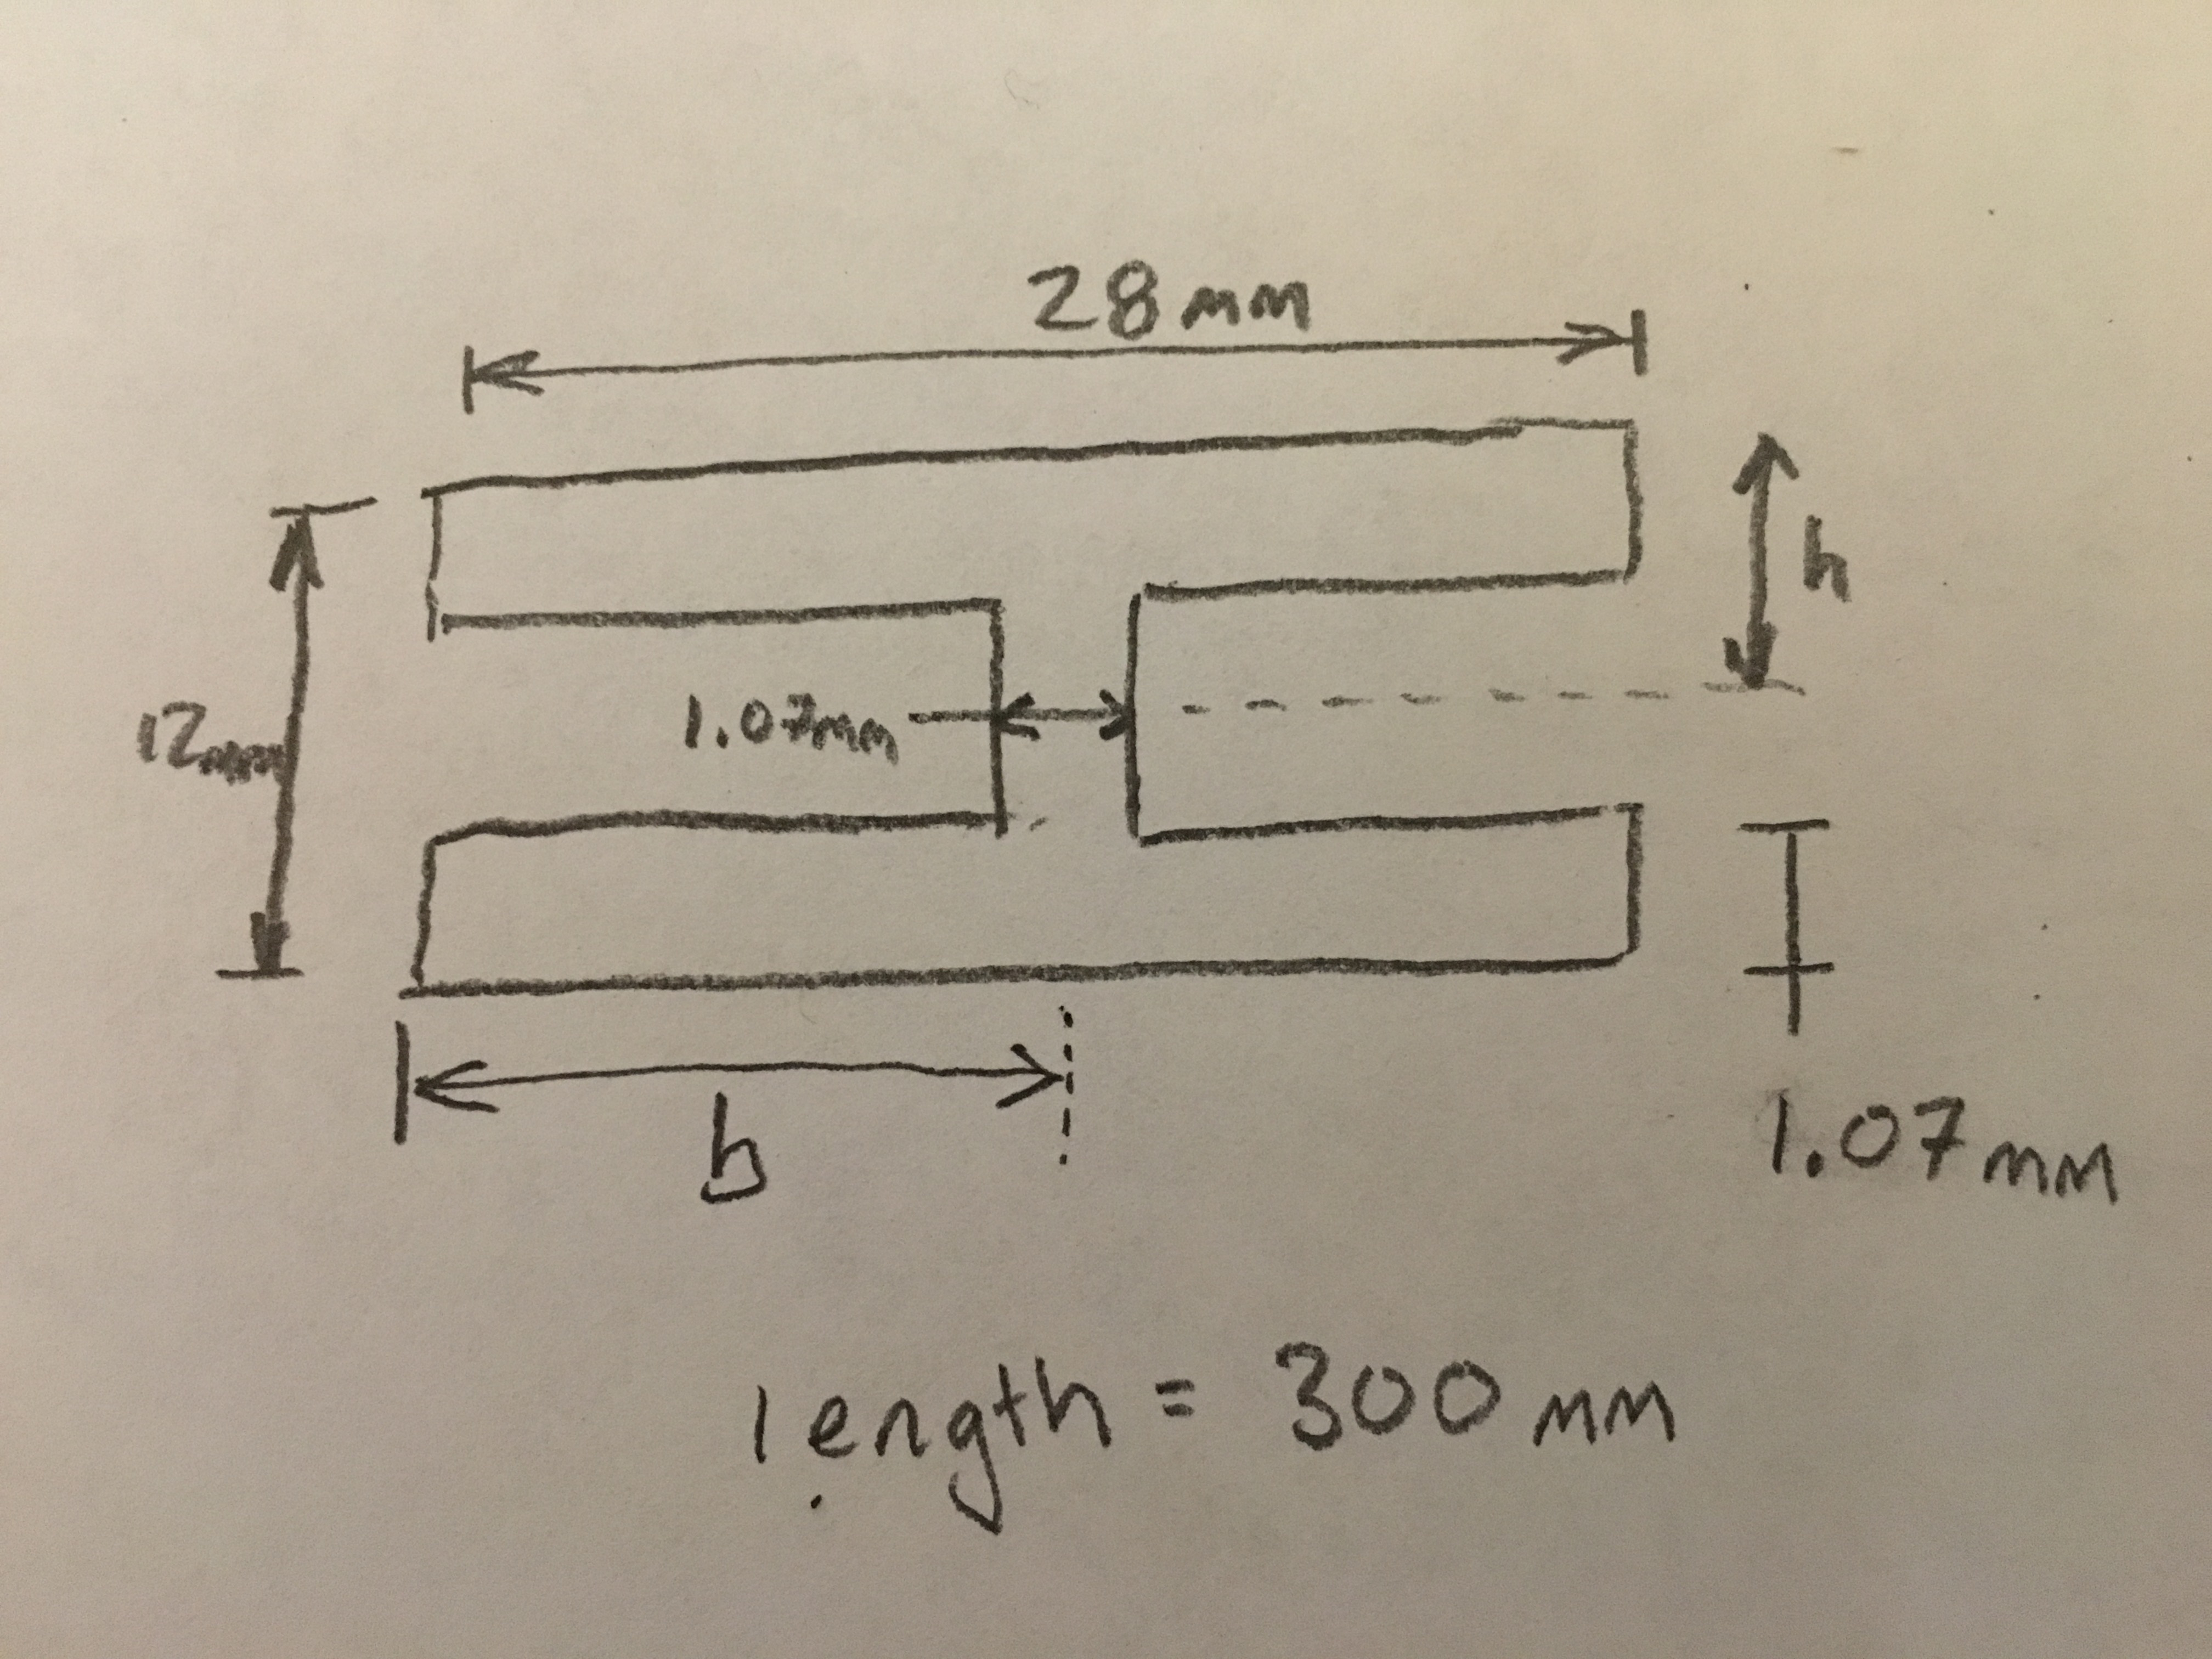 28mm
h
1.07mm
12mm
b
1.07mm
length = 300mm